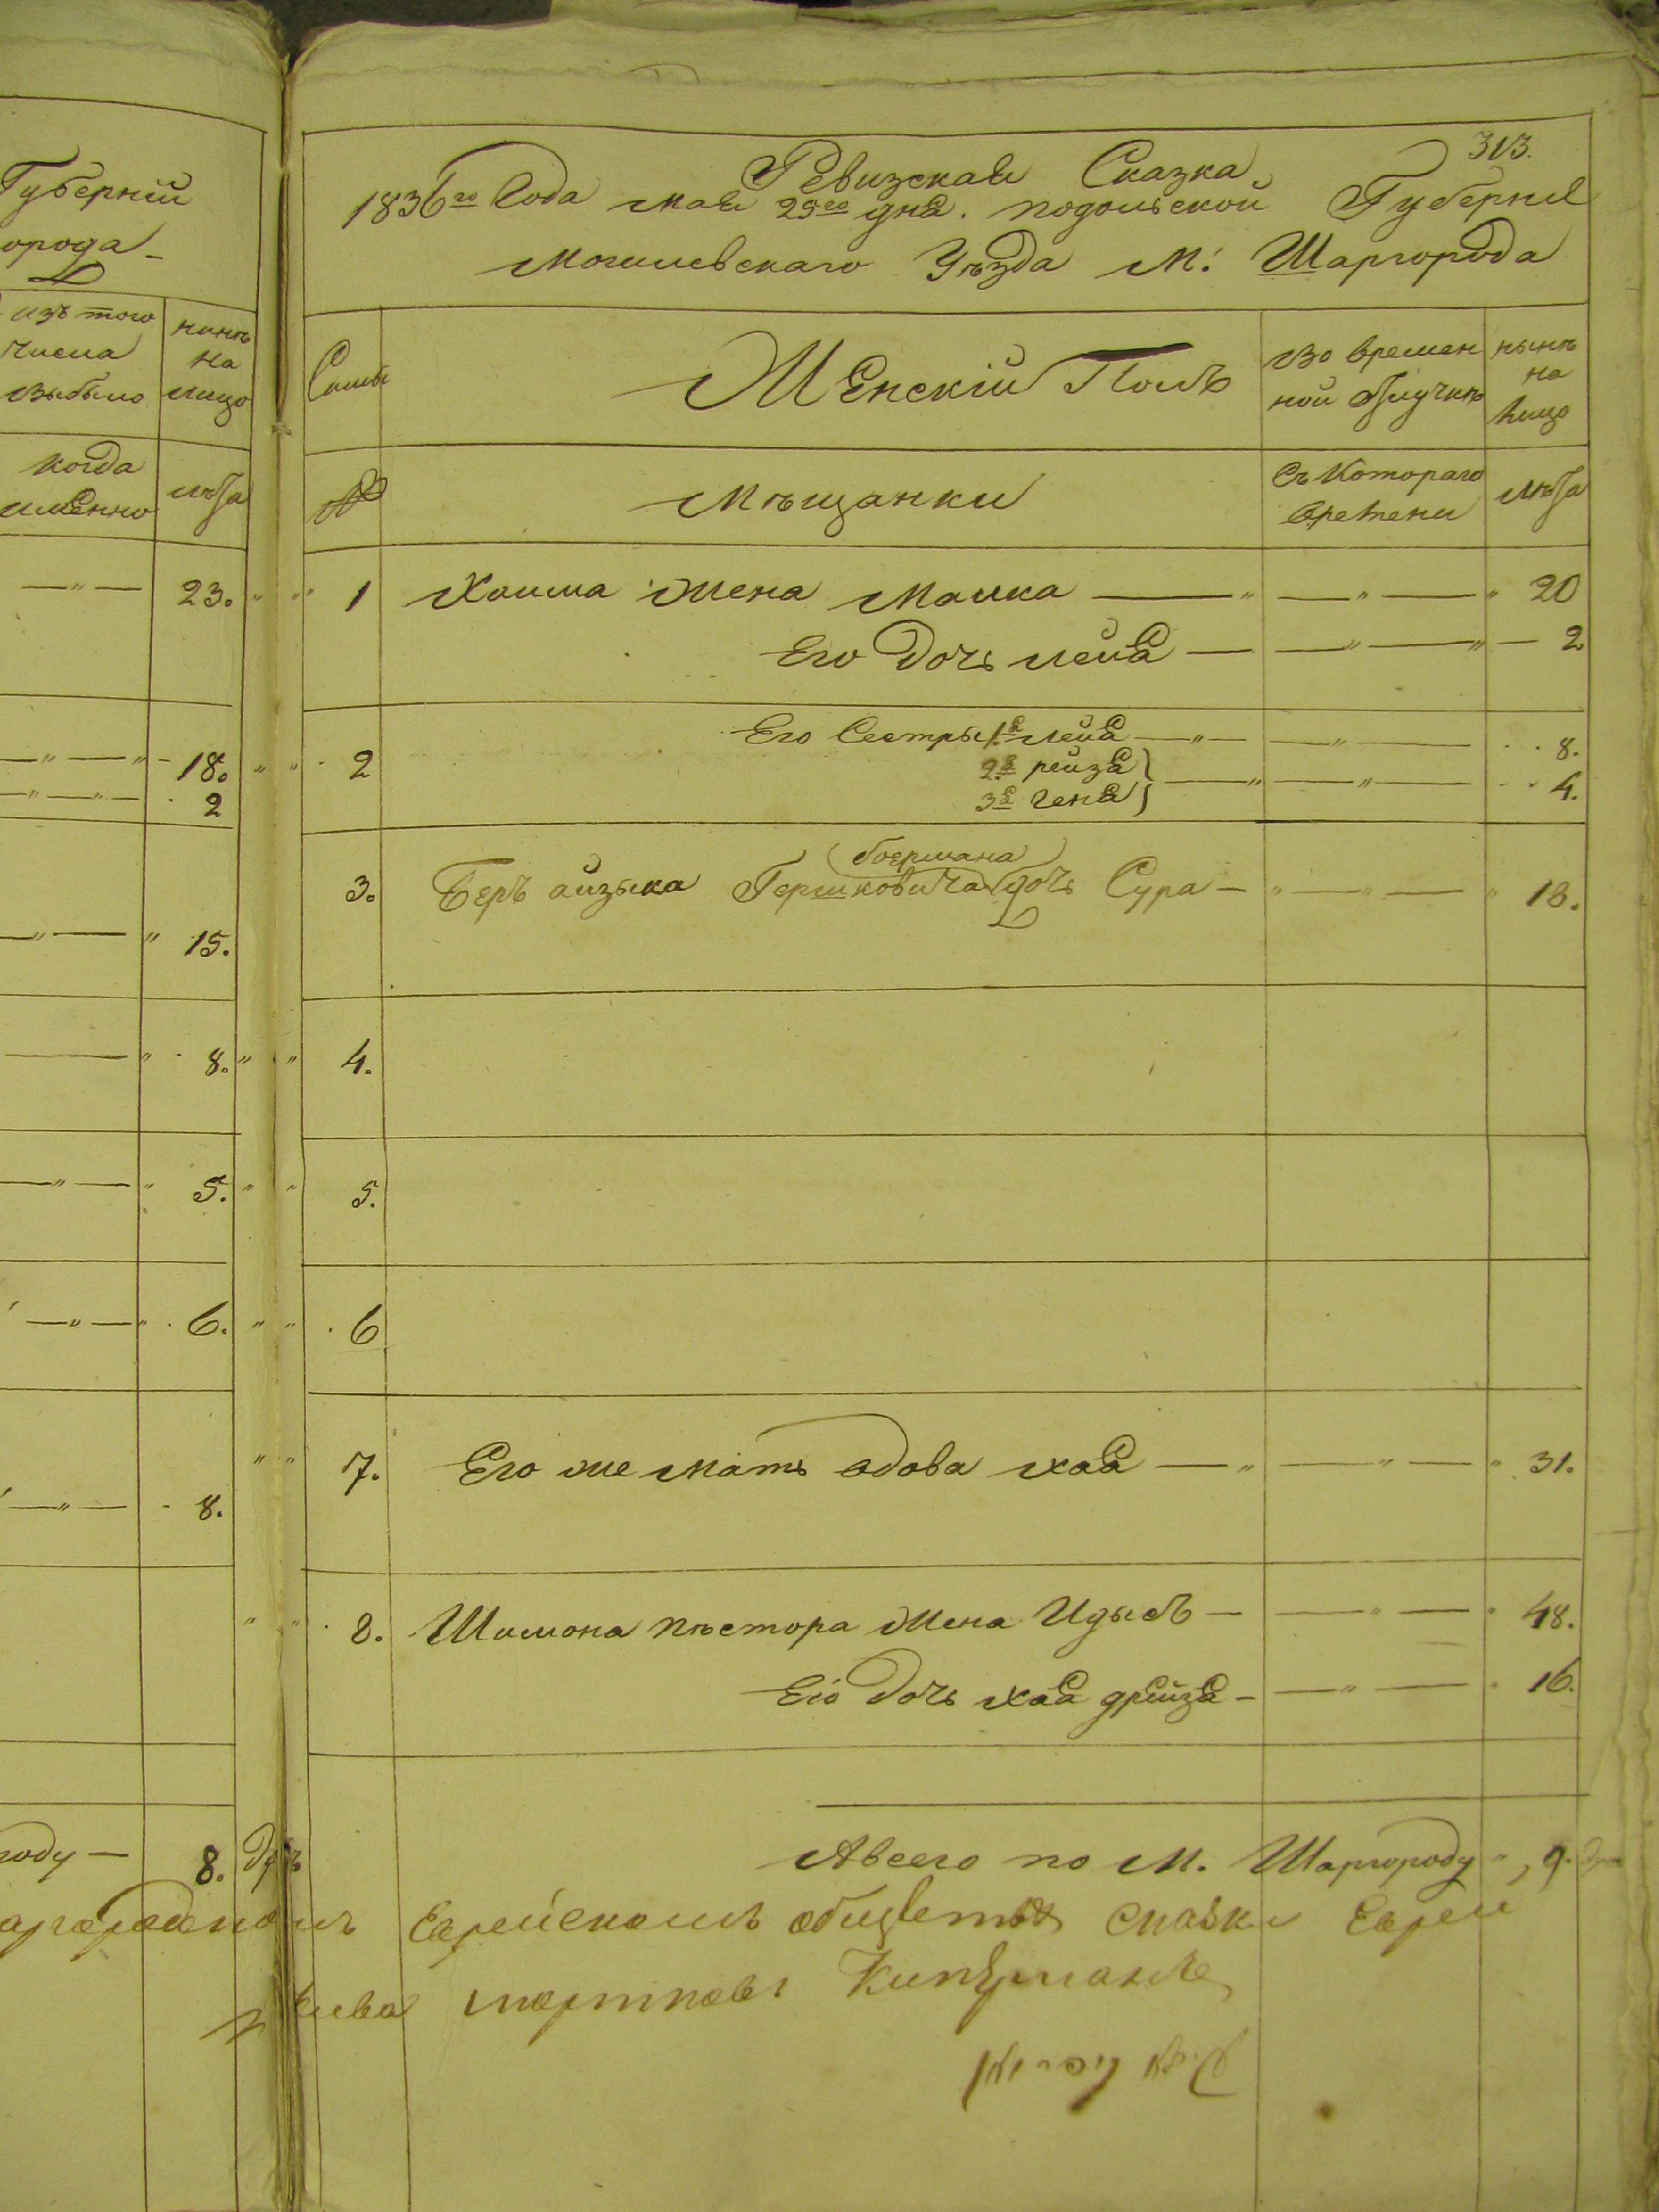 Губерніи
орода
изъ того
числа
выбыло
нынѣ
на
лицо
когда
именно
лѣта
23.
18.
2
15.
8.
5.
6.
8.
8. душъ
313.
Ревизская Сказка
1836го Года мая 29го дня. подольской Губерніи
могилевскаго Уѣзда М: Шаргорода
Женскій Полъ
во времен
ной отлучкѣ
нынѣ
на
лицо
№
мѣщанки
съ Котораго
времени
лѣта
1 Хаима жена Малка 20
Его дочь лейа 2
2 Его Сестры 1я лейа 8.
2я рейза
3я Гена 4.
боермана
3. Беръ айзыка Гершковича дочь Сура 18.
4.
5.
6
7. Его же мать вдова хаа 31.
8. Шимона Нѣстора жена Идысъ 48.
Его дочь хаа дрейза 16.
А всего по М. Шаргороду 9.
Еврейскомъ обществѣ сказки Евреи